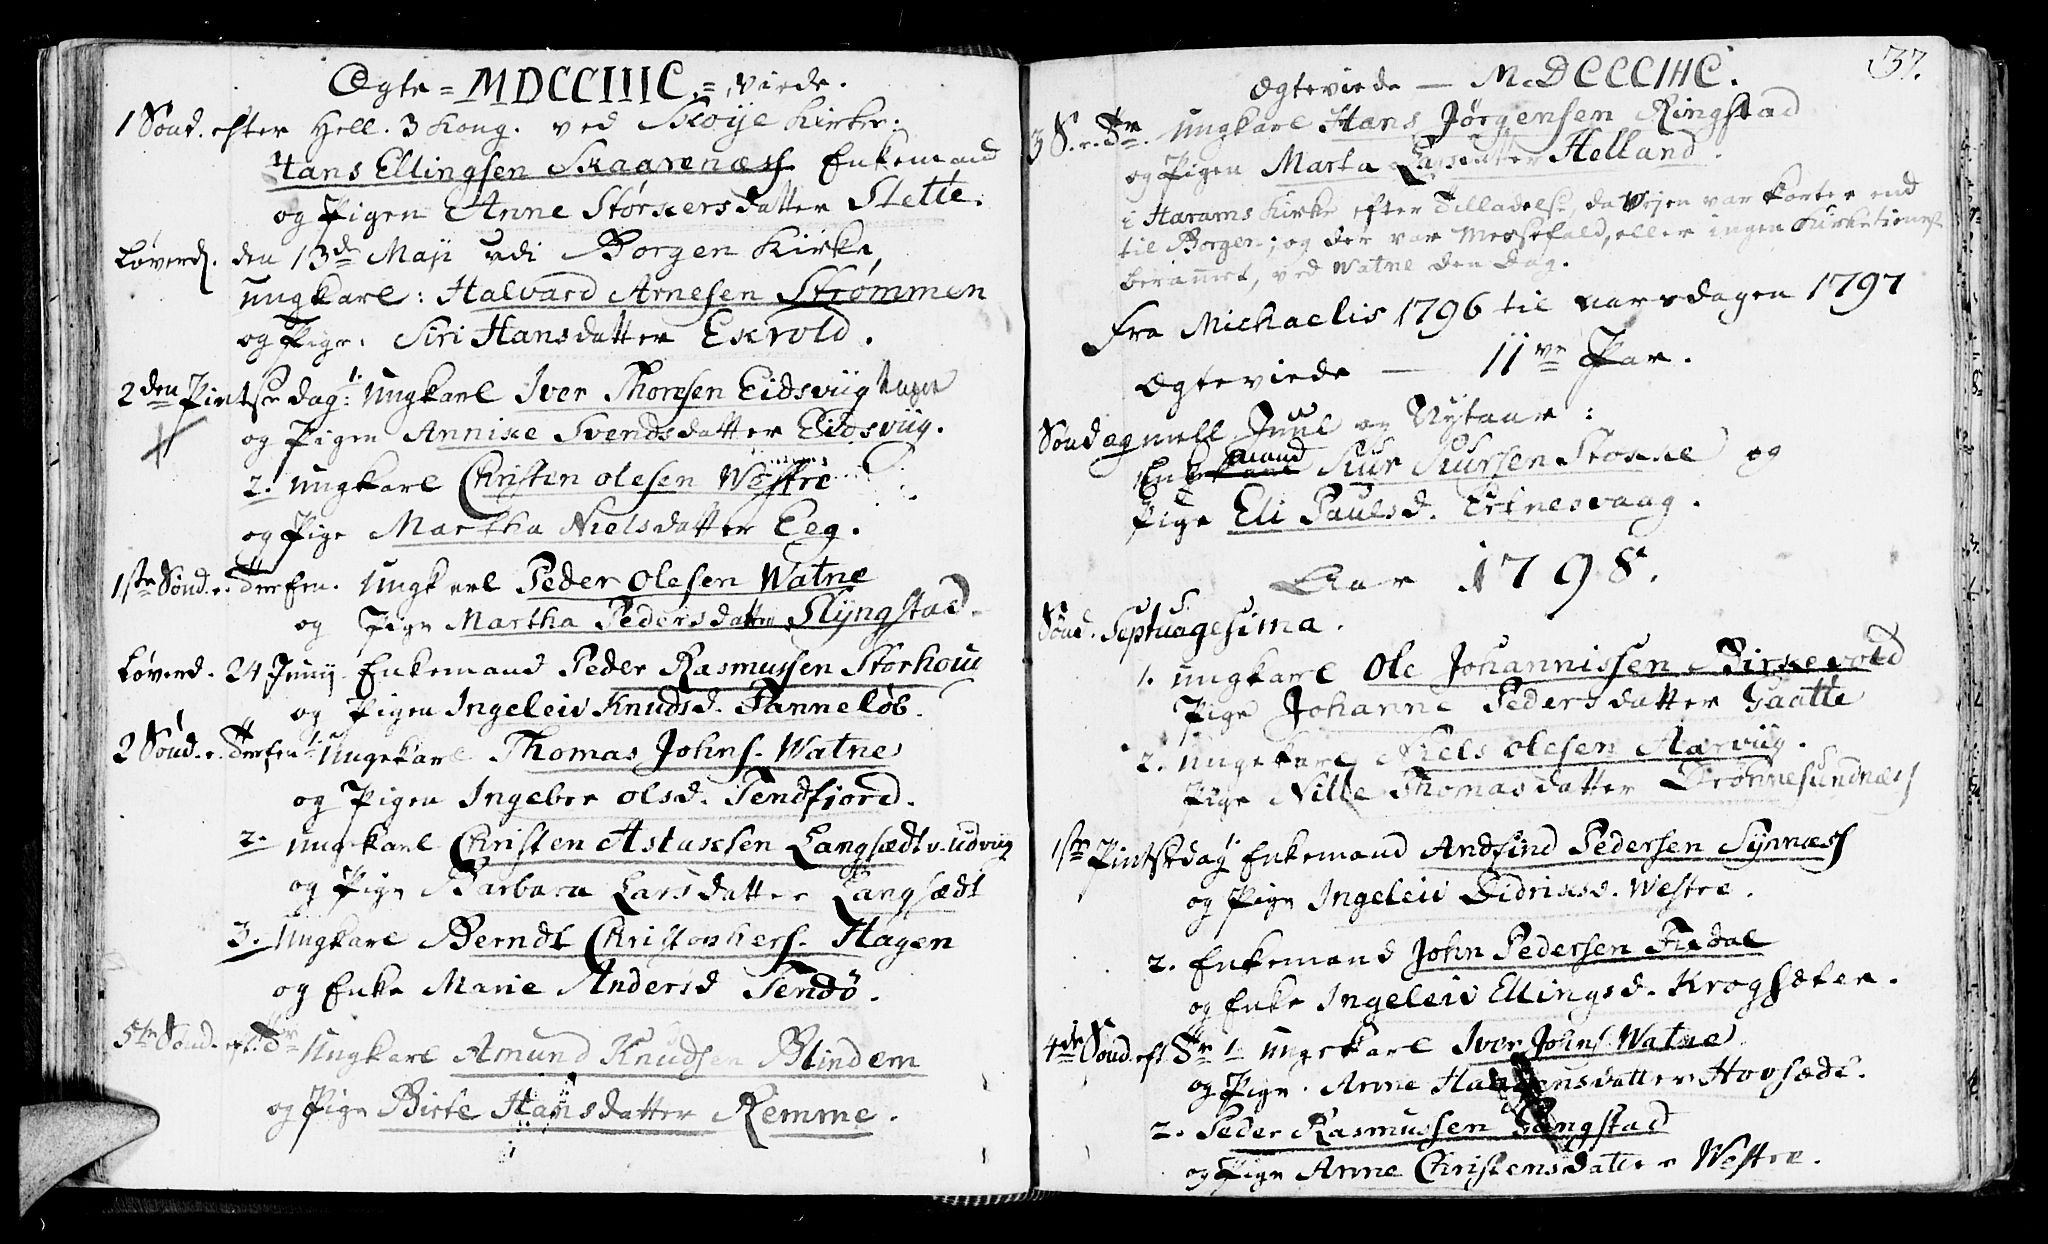 Ægte = MDCCIIIC. = Viede.
1 Sønd. efter Hell. 3 Kong. ved Skoije Kirke:
Hans Ellingsen Skaarenæss Enkemand
og Pigen Anne Størkersdatter Slette.
Løverd. den 13de Maji udi Borgen Kirke,
ungkarl: Halvard Arnesen Strømmen
og Pige: Siri Hansdatter Exrold.
2den Pintsedag: 1. Ungkarl Iver Thoresen Eidsviig
og Pigen Annike Svendsdatter Eidsviig.
2. ungkarl Christen Olesen Westre
og Pige Martha Nielsdatter Eeg.
1ste Sønd. e. Trefen. Ungkarl Peder Olesen Watne
og Pige Martha Pedersdatter Slÿngstad.
Løverd. 24 Junij Enkemand Peder Rasmussen Storhoug
og Pigen Ingeleiv Knudsd. Tanneløb.
2 Sønd. e. Trefen 1. Ungekarl Thomas Johns. Watne
og Pigen Ingebor Olsd. Tendfjord.
2. ungkarl Christen Astaxsen Langsædt v. Udviig
og Pige Barbara Larsdatter Langsædt
3. Ungkarl Berndt Christophers. Hagen
og Enke Marie Andersd Tendø.
5te Sønd. eft. Tr Ungkarl Amund Knudsen Blindem
og Pige Birte Hansdatter Remme.
37.
Ægteviede — MDCCCIIIC.
3 S. e. Tr. Ungkarl Hans Jørgensen Ringstad
og Pigen Marta Larsdatter Helland.
i Harams Kirke efter Tilladelse, da Vejen var korter end
til Borgen; og der var Messefald, eller ingen Kirketieneste
berammet, ved Watne den Dag.
Fra Michaelis 1796 til Aarsdagen 1797
Ægteviede — 11ve Par.
Søndag mell Juul og Nytaar:
Enkemand Siur Siursen Stokke og
Pige Eli Paulsd. Ertnesvaag.
Aar 1798.
Sønd. Septuagesima.
1. ungkarl Ole Johannissen Birkevold
Pige Johanne Pedersdatter Gaatte
2. ungekarl Niels Olesen Aarviig.
Pige Nille Thomasdatter Drønnesundnæss
1ste Pintsedag 1. Enkemand Andfind Pedersen Synnæss
og Pige Ingeleiv Didrixsd. Westre.
2. Enkemand John Pedersen Tredal
og Enke Ingeleiv Ellingsd. Krogsæter.
4de Sønd. eft Tr 1. ungekarl Iver Johns. Watne
og Pige. Anne Hansdatter Hovsædt.
2. Peder Rasmussen Langstad
og Pige Anne Christensdatter Westre.